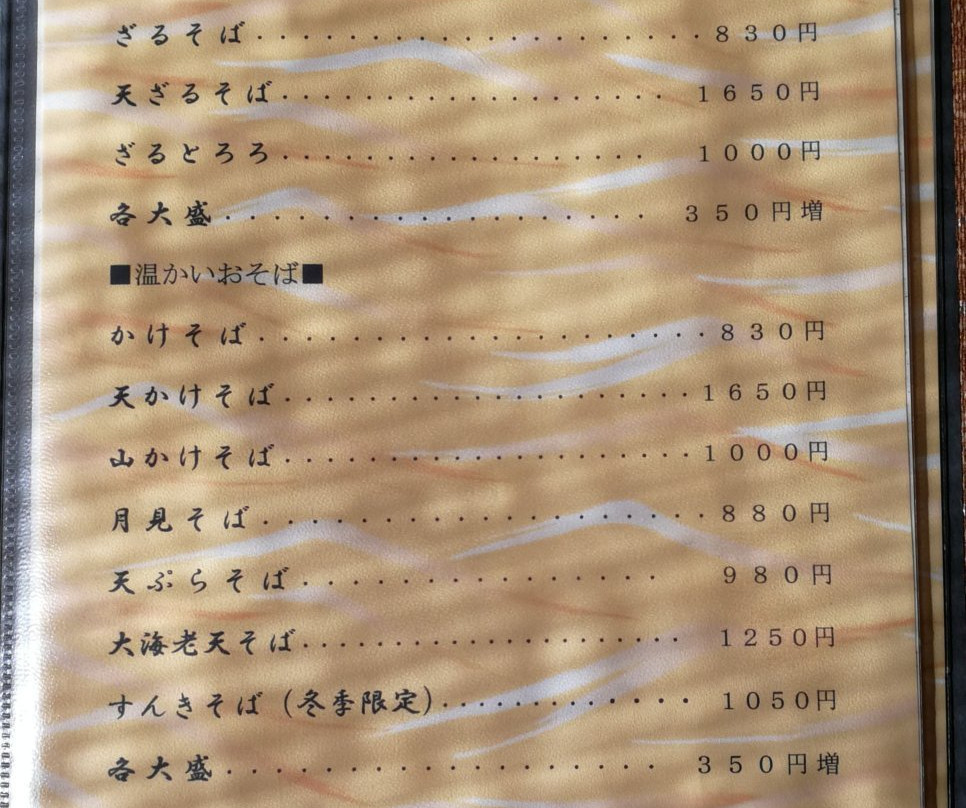 ざるそば・・・・・・・・・・・・・・・・・・・・・830円
天ざるそば・・・・・・・・・・・・・・・・・・ 1650円
ざるとろろ・・・・・・・・・・・・・・・・・ 1000円
各大盛・・・・・・・・・・・・・・・・・・・ 350円増
■温かいおそば■
かけそば・・・・・・・・・・・・・・・・・・・・・830円
天かけそば・・・・・・・・・・・・・・・・・・・1650円
山かけそば・・・・・・・・・・・・・・・・・・・1000円
月見そば・・・・・・・・・・・・・・・・・・・・・880円
天ぷらそば・・・・・・・・・・・・・・・・・ 980円
大海老天そば・・・・・・・・・・・・・・・・・・ 1250円
すんきそば（冬季限定）・・・・・・・・・・・・ 1050円
各大盛・・・・・・・・・・・・・・・・・・・ 350円増